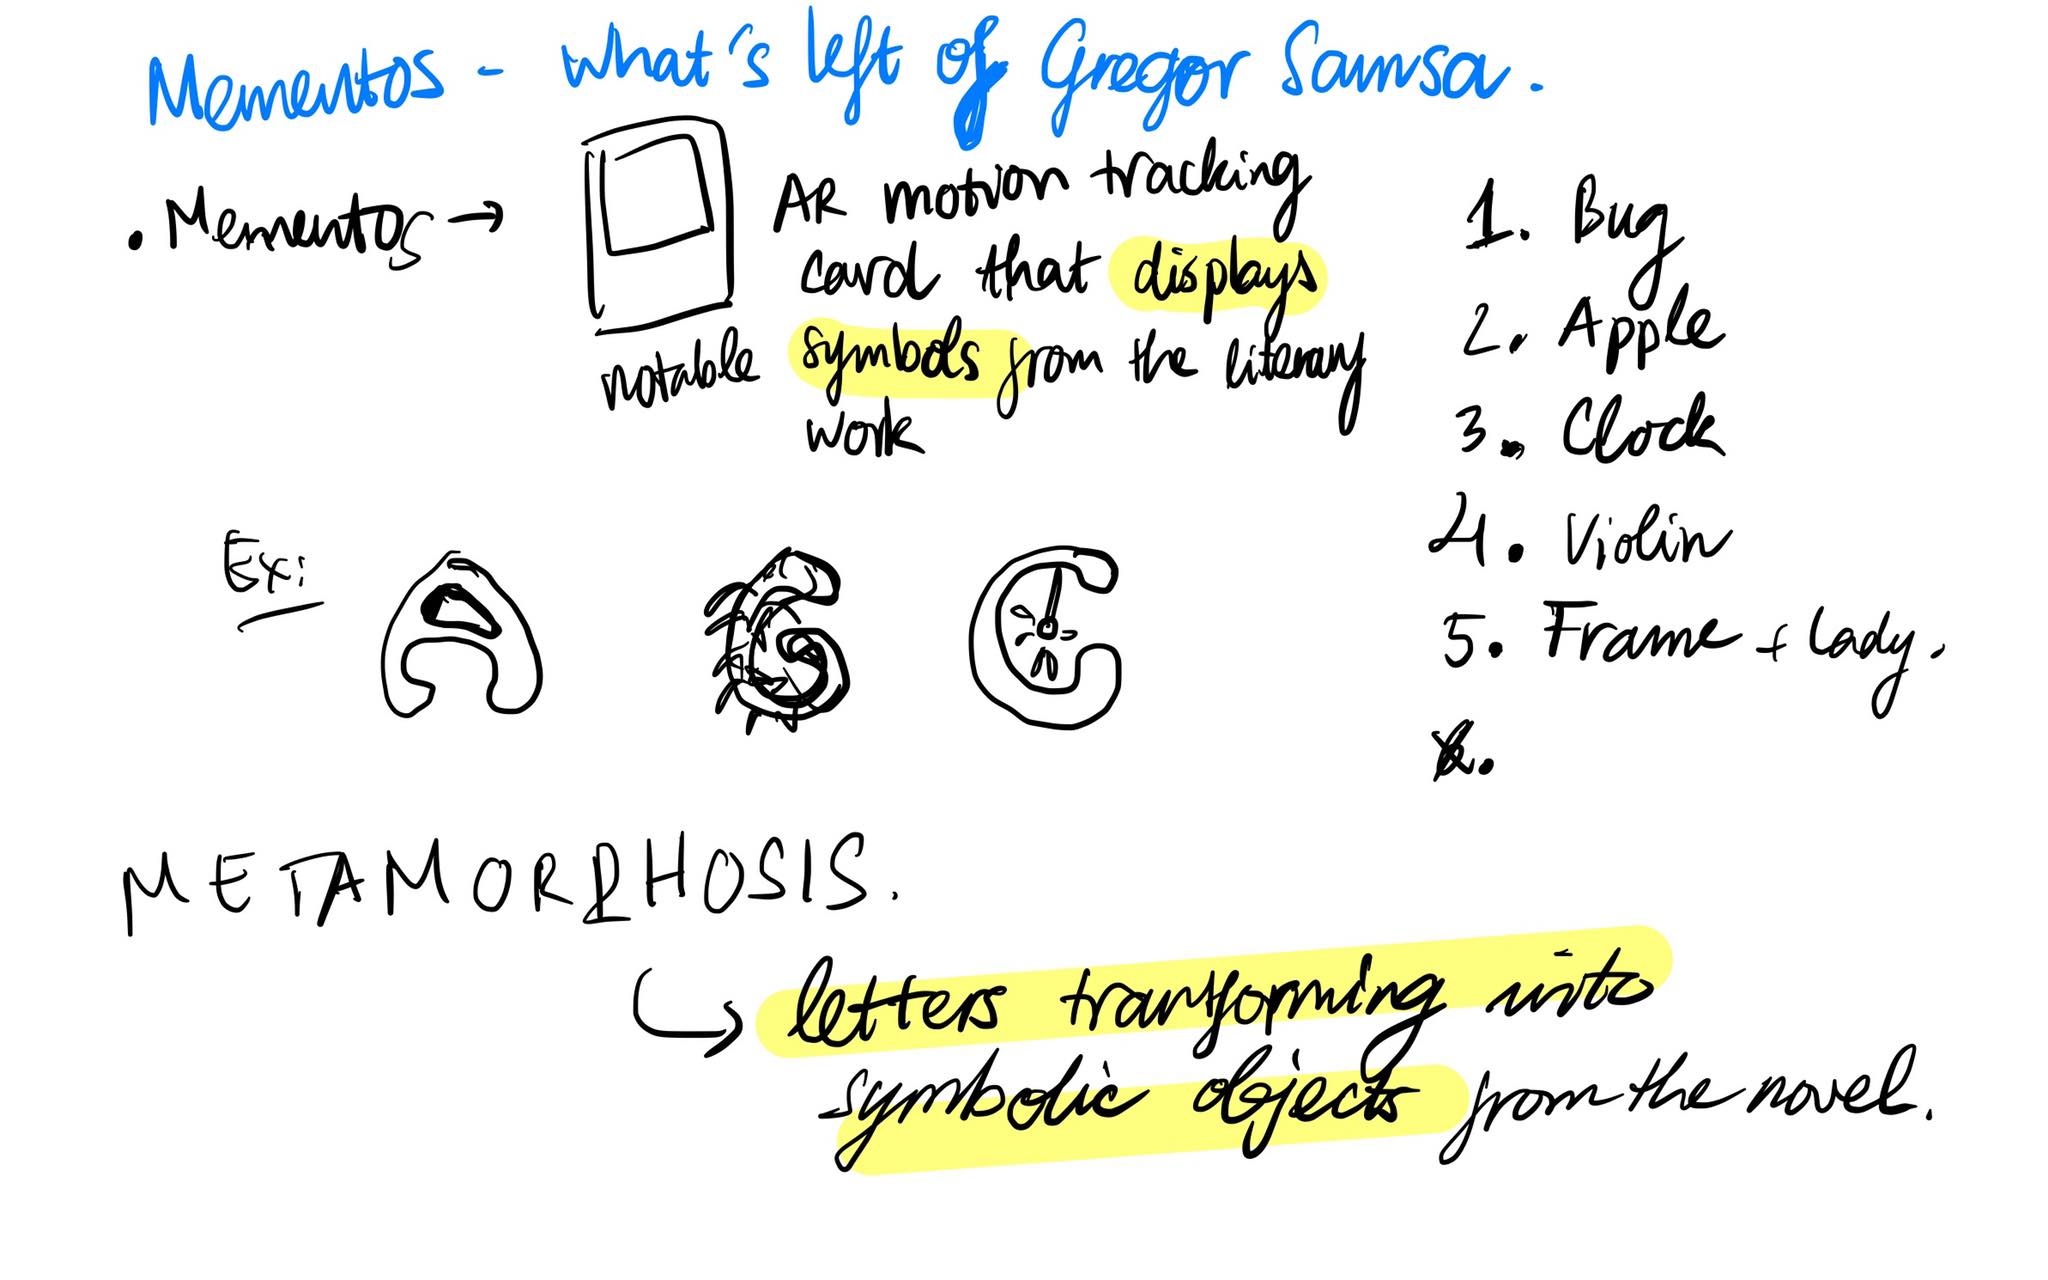 Mementos - what's left of Gregor Samsa.
. Mementos →
AR motion tracking
card that displays
notable symbols from the literary
work
1. Bug
2. Apple
3. Clock
4. Violin
5. Frame + Lady.
Ex:
A G C
METAMORPHOSIS.
↳ letters transforming into
symbolic objects from the novel.